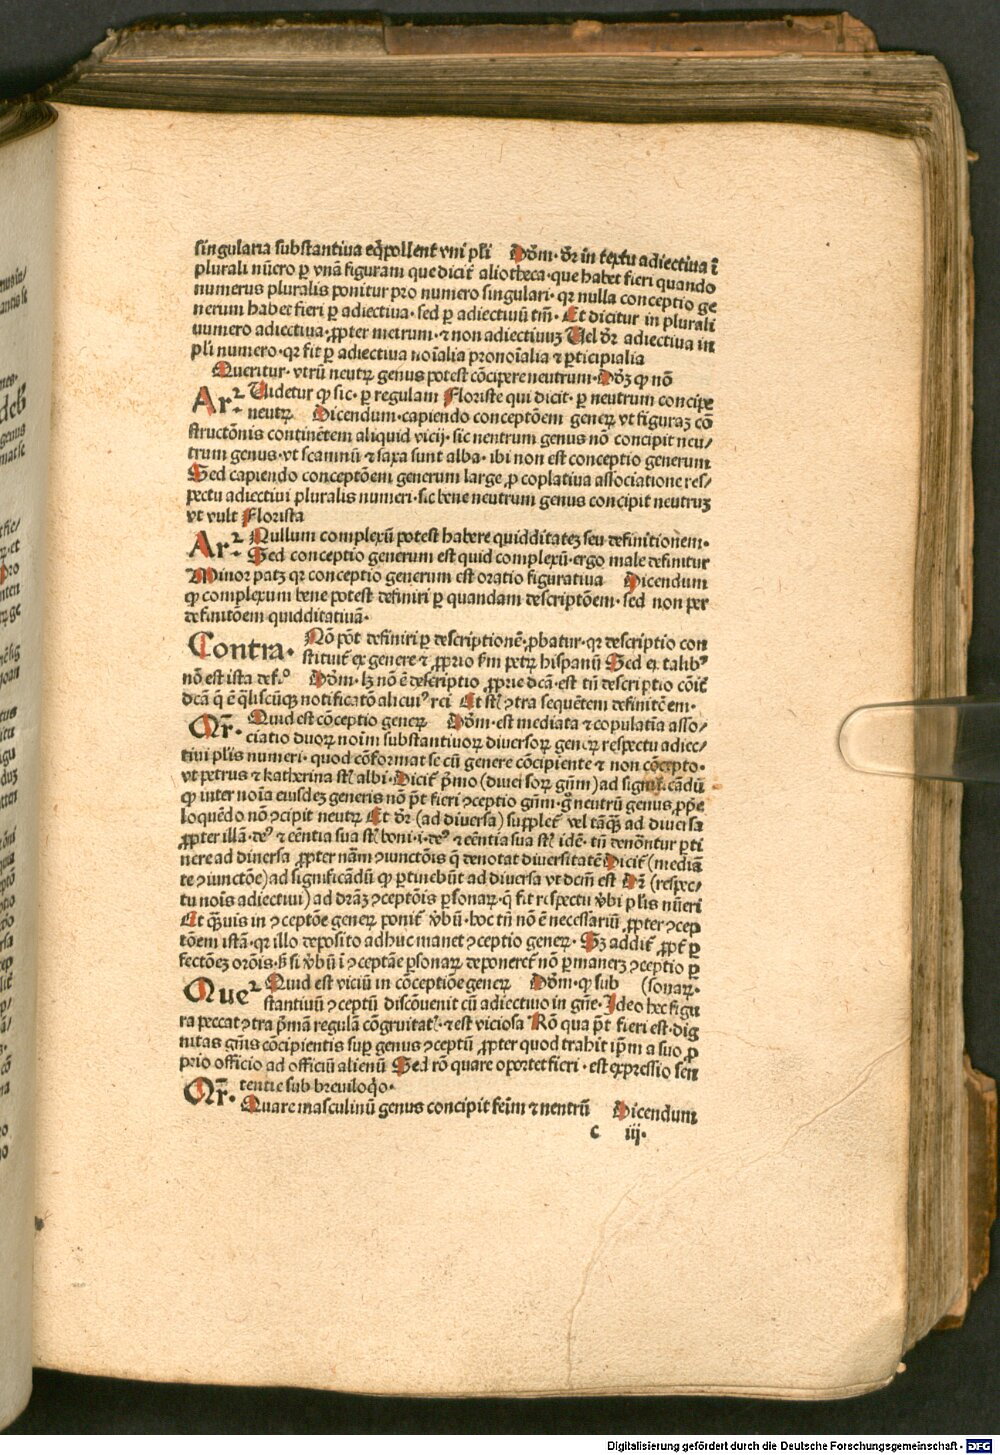 singularia substantiua eq̃pollent vni pl̃i Dõm· dr̃ in textu adiectiua ĩ
plurali nũero ꝑ vnã figuram que dicit̃ aliotheca· que habet fieri quando
numerus pluralis ponitur pro numero singulari· qꝛ nulla conceptio ge
nerum habet fieri ꝑ adiectiua· sed ꝑ adiectiuũ tm̃· Et dicitur in plurali
numero adiectiua· ꝓpter metrum· ⁊ non adiectiuuꝫ Uel dr̃ adiectiua in
pl̃i numero· qꝛ fit ꝑ adiectiua noĩalia pronoĩalia ⁊ ꝑticipialia
Queritur· vtrũ neutꝝ genus potest cõcipere neutrum· Dõꝫ ꝙ nõ
Arꝛ· Uidetur ꝙ sic· ꝑ regulam Floriste qui dicit· ꝑ neutrum concipe
neutꝝ Dicendum· capiendo conceptõem geneꝝ vt figuraꝫ cõ
structõnis continẽtem aliquid vicij· sic neutrum genus nõ concipit neu/
trum genus· vt scamnũ ⁊ saxa sunt alba· ibi non est conceptio generum
Sed capiendo conceptõem generum large ꝓ coplatiua associatione res/
pectu adiectiui pluralis numeri· sic bene neutrum genus concipit neutruꝫ
vt vult Florista
Arꝛ· Nullum complexũ potest habere quidditateꝫ seu definitionem·
Sed conceptio generum est quid complexũ· ergo male definitur
Minor patꝫ qꝛ conceptio generum est oratio figuratiua Dicendum
ꝙ complexum bene potest definiri ꝑ quandam descriptõem· sed non per
definitõem quidditatiuã·
Contra· Nõ põt definiri ꝑ descriptionẽ· ꝓbatur· qꝛ descriptio con
stituit̃ ex genere ⁊ ꝓprio ẜm petꝝ hispanũ Sed ex talibꝰ
nõ est ista def.º Dõm· lꝫ nõ ẽ descriptio ꝓprie dcã· est tñ descriptio cõit̃
dcã q̃ ẽ q̃liscũqꝫ notificatõ alicuiꝰ rei Et st̃ ꝯtra sequẽtem definitõem·
Qr̃· Quid est cõceptio geneꝝ Dõm· est mediata ⁊ copulatĩa asso/
ciatio duoꝝ noĩm substantiuoꝝ diuersoꝝ geneꝝ respectu adiec/
tiui pl̃is numeri· quod cõformat se cũ genere cõcipiente ⁊ non cõcepto·
vt petrus ⁊ katherina st̃ albi· Dicit̃ p̃mo (diuersoꝝ gñm) ad signifi.cãdũ
ꝙ inter noĩa eiusdeꝫ generis nõ p̃t fieri ꝯceptio gñm· g̃ neutrũ genus ꝓp̃e
loquẽdo nõ ꝯcipit neutꝝ Et dr̃ (ad diuersa) supplet̃ vel tãqꝫ ad diuersa
ꝓpter illã· deꝰ ⁊ eẽntia sua st̃ boni· i· deꝰ ⁊ eẽntia sua st̃ idẽ· tñ denõntur ꝑti
nere ad diuersa ꝓpter nãm ꝯiunctõis q̃ denotat diuersitatẽ Dicit̃ (mediã
te ꝯiunctõe) ad significãdũ ꝙ ꝑtinebũt ad diuersa vt dcm̃ est Dr̃ (respec/
tu nois adiectiui) ad dr̃aꝫ ꝯceptõis ꝑsonaꝝ· q̃ fit respectu v̾bi pl̾is nũeri
Et q̃uis in ꝯceptõe geneꝝ ponit̃ v̾bũ· hoc tñ nõ ẽ necessariũ ꝓpter ꝯcep
tõem istã· qꝛ illo deposito adhuc manet ꝯceptio geneꝝ· Sꝫ addit̃ ꝓpt̃ ꝑ
fectõeꝫ orõis· h̃ si v̾bũ ĩ ꝯceptõe ꝑsonaꝝ deponeret̃ nõ ꝑmaneꝫ ꝯceptio ꝑ
Queꝛ Quid est viciũ in cõceptiõe geneꝝ Dõm· ꝙ sub (sonaꝝ·
stantiuũ ꝯceptũ discõuenit cũ adiectiuo in gñe· Ideo hec figu
ra peccat ꝯtra p̃mã regulã cõgruitat̃· ⁊ est viciosa Rõ qua p̃t fieri est· dig
nitas gñis cõcipientis suꝑ genus ꝯceptũ ꝓpter quod trahit ip̃m a suo ꝓ
prio officio ad officiũ alienũ Sed rõ quare oportet fieri· est expressio sen
tentie sub breuiloqõ·
Qr̃· Quare masculinũ genus concipit feĩm ⁊ neutrũ Dicendum
c iij·
Digitalisierung gefördert durch die Deutsche Forschungsgemeinschaft - DFG